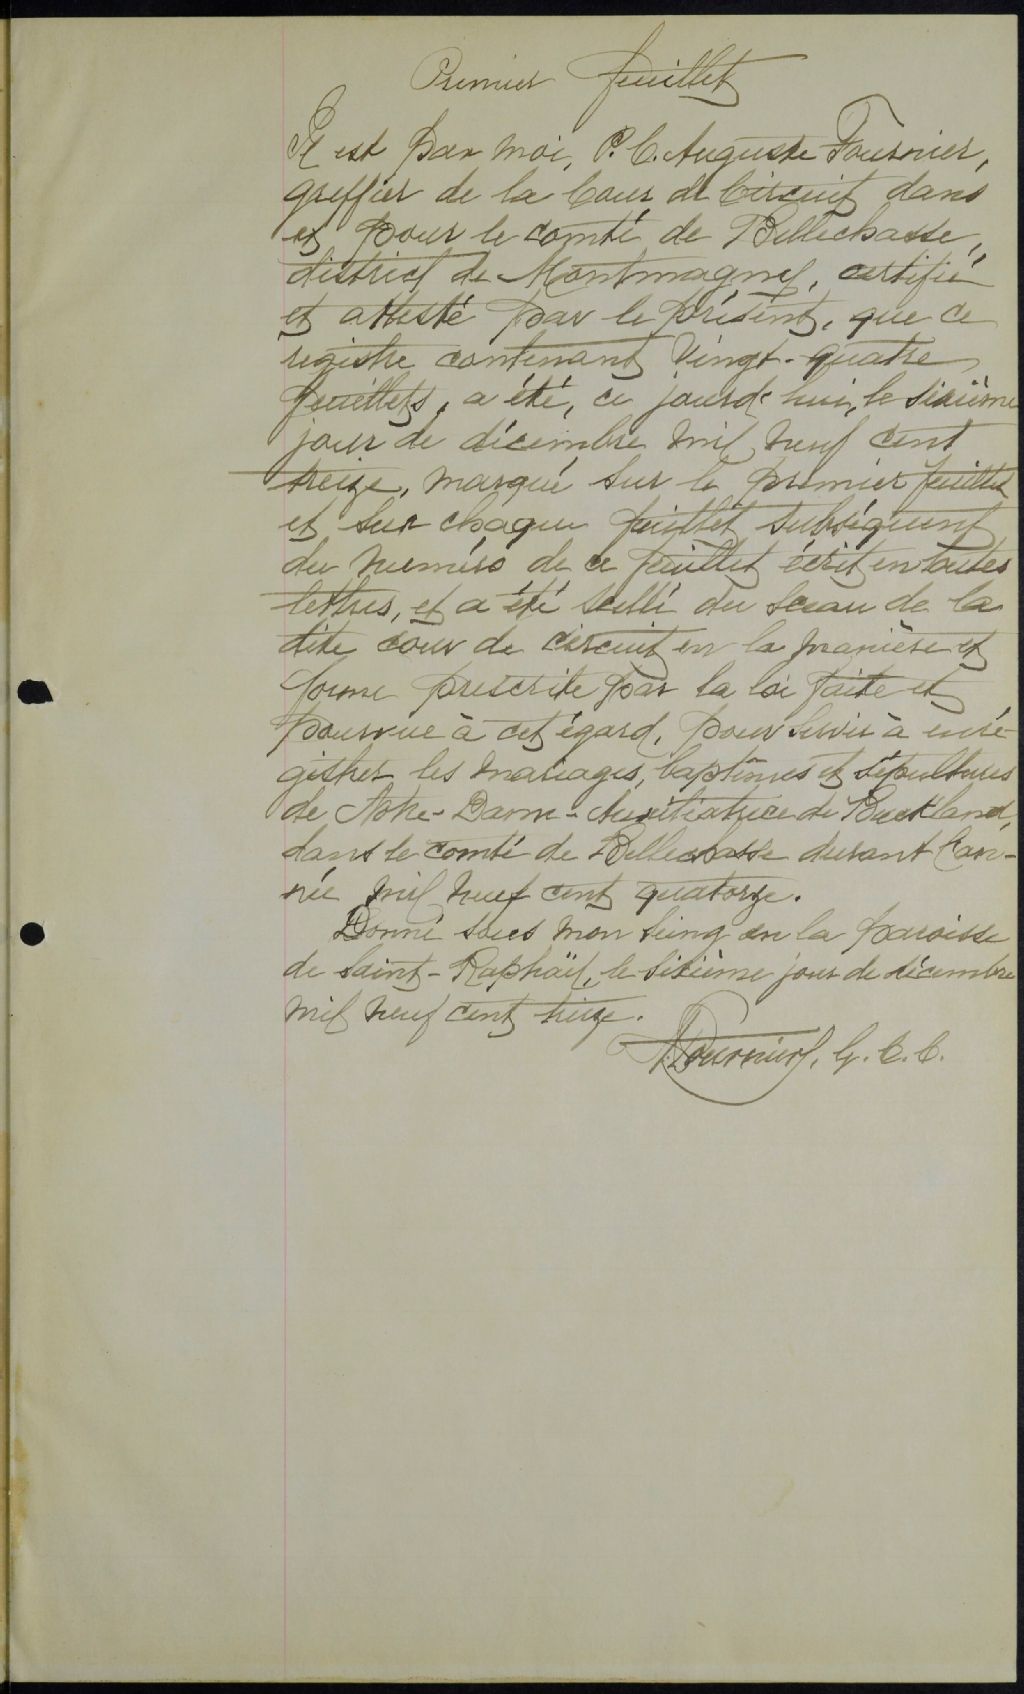 Premier feuillet
Il est par moi, P. C. Auguste Fournier,
greffier de la Cour de Circuit dans
et pour le comté de Bellechasse,
district de Montmagny, certifié
et attesté par le présent, que ce
registre contenant vingt-quatre
feuillets, a été, ce jourd'hui, le sixième
jour de décembre mil neuf cent
treize, marqué sur le premier feuillet
et sur chaque feuillet subséquent
du numéro de ce feuillet écrit en toutes
lettres, et a été scellé du sceau de la
dite cour de circuit en la manière et
forme prescrite par la loi faite et
pourvue à cet égard, pour servir à enre-
gistrer les mariages, baptêmes et sépultures
de Notre-Dame-Auxiliatrice de Buckland,
dans le comté de Bellechasse durant l'an-
née mil neuf cent quatorze.
Donné sous mon seing en la paroisse
de Saint-Raphaël, le sixième jour de décembre
mil neuf cent treize.
A. Fournier, G. C. C.